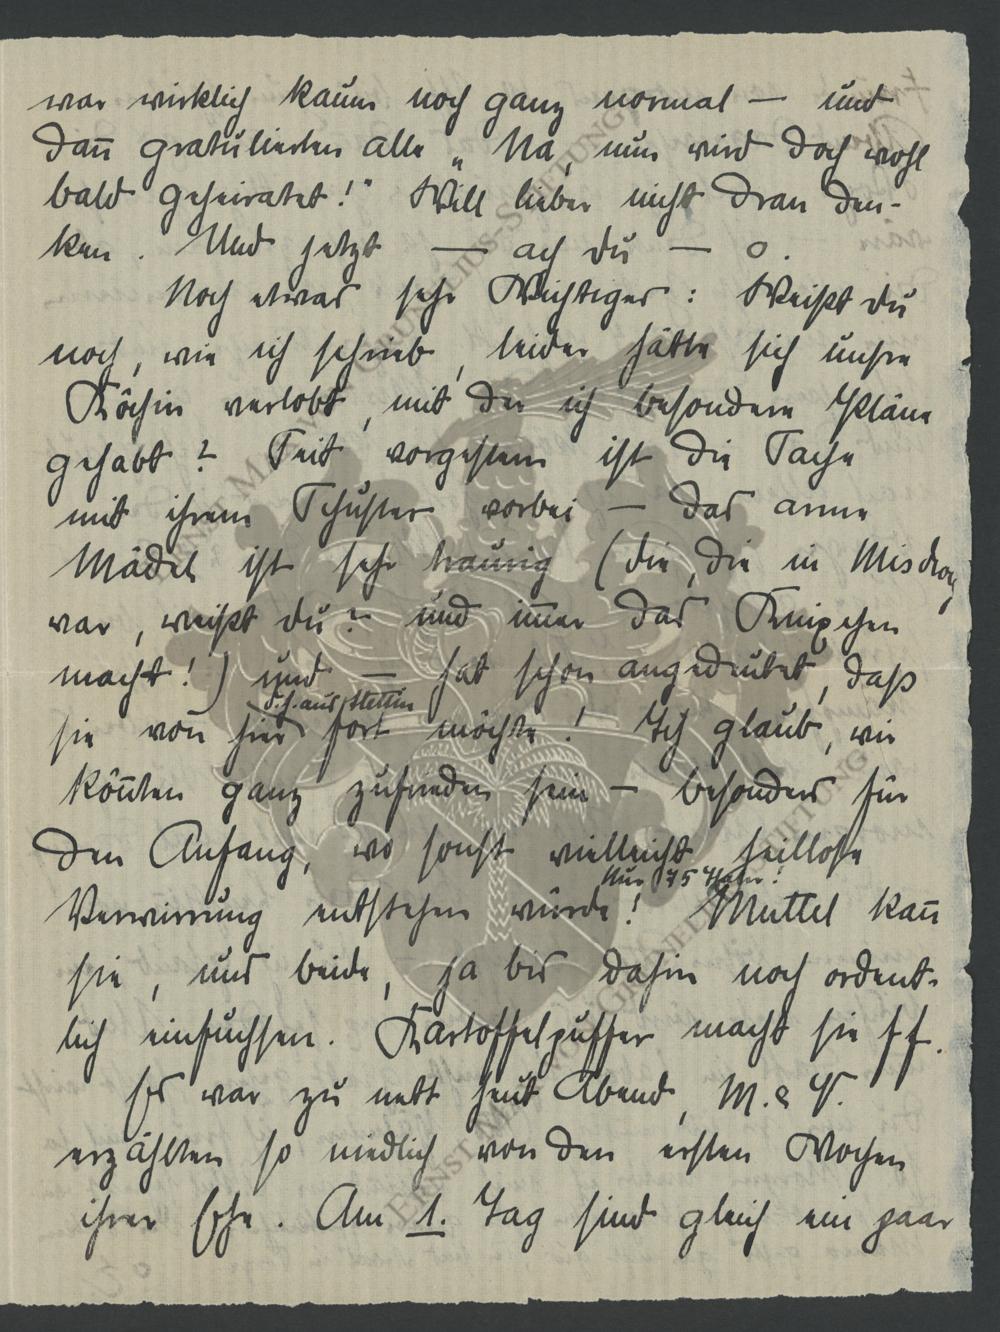 war wirklich kaum noch ganz normal — und
dan̄ gratulierten alle „Na, nun wird doch wohl
bald geheiratet!" Will lieber nicht dran den-
ken. Und jetzt — ach du — o.
Noch etwas sehr Wichtiges: Weißt du
noch, wie ich schrieb, leider hätte sich unsre
Köchin verlobt, mit der ich besondere Pläne
gehabt? Seit vorgestern ist die Sache
mit ihrem Schuster vorbei — das arme
Mädel ist sehr traurig (die, die in Misdroy
war, weißt du? – und im̄er das Knixchen
macht!) und — hat schon angedeutet, daß
d.h. aus Stettin
sie von hier fort möchte! Ich glaub, wir
kön̄ten ganz zufrieden sein — besonders für
den Anfang, wo sonst vielleicht heillose
Nur 75 Thaler!
Verwirrung entstehen würde! Muttel kan̄
sie, uns beide, ja bis dahin noch ordent-
lich einfuchsen. Kartoffelpuffer macht sie ff.
Es war zu nett heut Abend, M. & V.
erzählten so niedlich von den ersten Wochen
ihrer Ehe. Am 1. Tag sind gleich ein paar
ERNST MORITZ VON GRUNELIUS-STIFTUNG
ERNST MORITZ VON GRUNELIUS-STIFTUNG